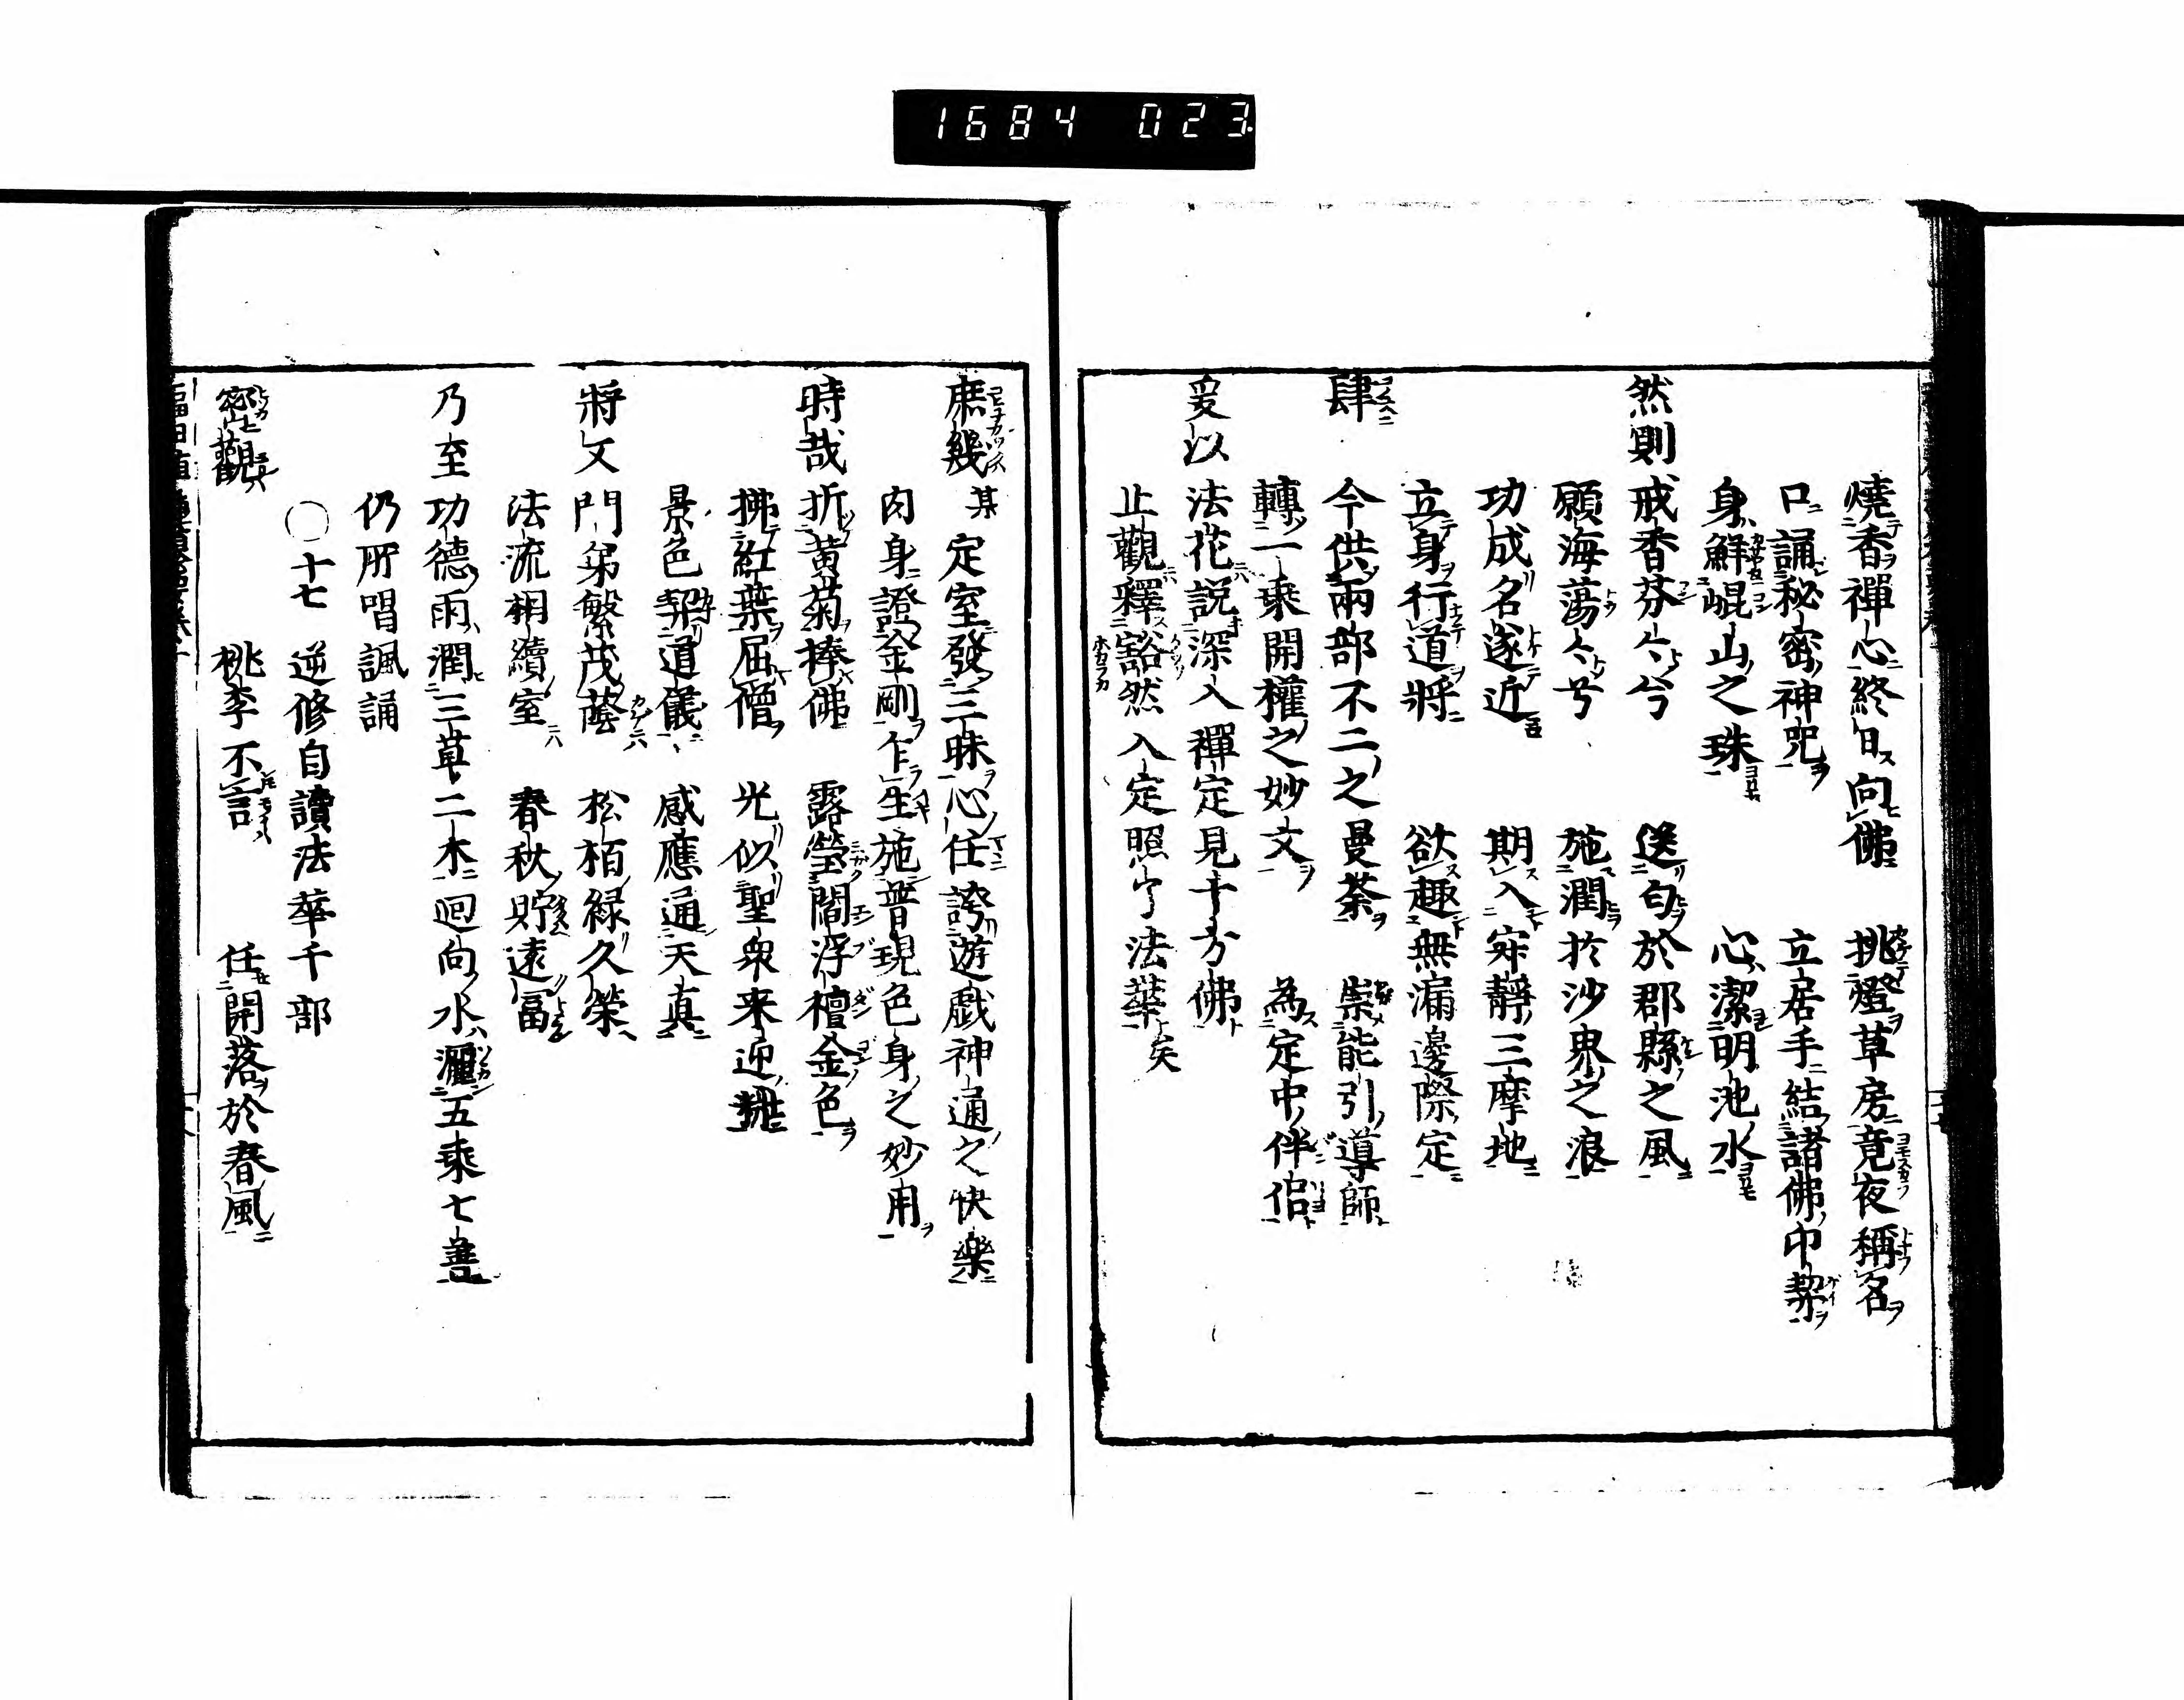 1684 023
燒香禪心終日向佛 挑燈草房竟夜稱名
口誦秘密神咒 立居手結諸佛印契
身鮮崐山之珠 心潔明池水
然則 戒香芬々兮 送匂於郡縣之風
願海蕩々兮 施潤於沙界之浪
功成名遂近 期入寂靜三摩地
立身行道將 欲趣無漏邊際定
肆 今供兩部不二之曼荼 崇能引導師
轉一乘開權之妙文 為定中伴侶
爰以 法花説深入禪定見十方佛
止觀釋豁然入定照了法華矣
庶幾 某 定室發三昧心任誇遊戯神通之快樂
肉身證金剛乍生施普現色身之妙用
時哉 折黄菊捧佛 露瑩閻浮檀金色
拂紅葉屈僧 光似聖衆来迎
景色契道儀 感應通天真
將又 門弟繁茂蔭 松栢緑久榮
法流相續室 春秋貯遠冨
乃至 功德雨潤三草二木 迴向水灑五乘七善
仍所唱諷誦
○十七 逆修自讀法華千部
密觀 桃李不言 任開落於春風